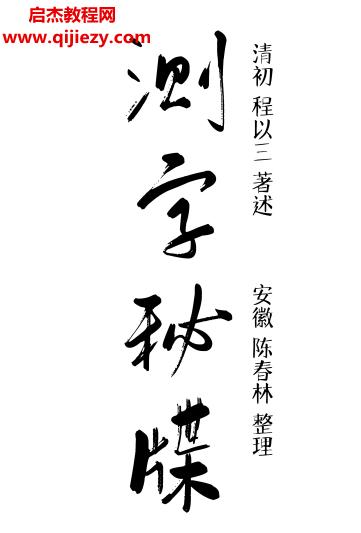 启杰教程网
www.qijiezy.com
清初 程以三 著述
安徽 陈春林 整理
测字秘牒